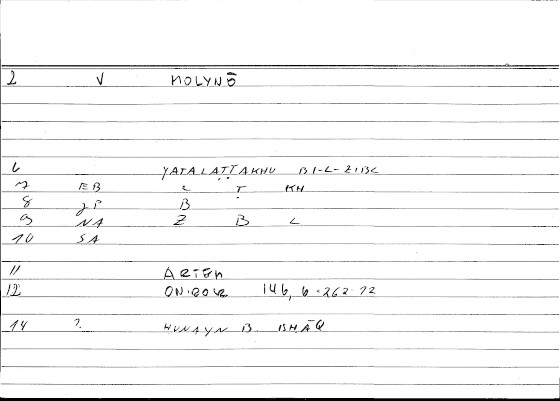 2 V MOLYNŌ
6 YATALAṬṬAKHU BI-L-ZIBL
7 EB L Ṭ KH
8 JP B
9 NA Z B L
10 SA
11 ARTEM
12 146, 6-262-72
14 ? HUNAYN B.